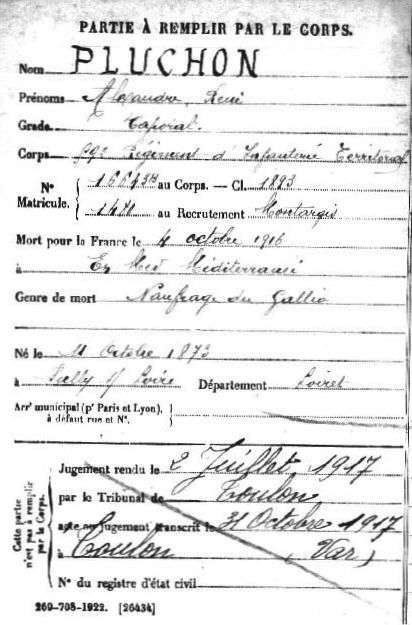 PARTIE À REMPLIR PAR LE CORPS.
Nom PLUCHON
Prénoms Alexandre René
Grade Caporal.
Corps Régiment d'Infanterie Territorial
N° Matricule. au Corps. — Cl. 1893
au Recrutement Montargis
Mort pour la France le 4 octobre 1916
à En Mer Méditerranée
Genre de mort Naufrage du Gallia
Né le 11 Octobre 1873
à Sully s/ Loire Département Loiret
Arr^t municipal (p^r Paris et Lyon),
à défaut rue et N°.
Cette partie n'est pas à remplir par le Corps.
Jugement rendu le 2 Juillet 1917
par le Tribunal de Toulon
acte ou jugement transcrit le 31 Octobre 1917
à Toulon (Var)
N° du registre d'état civil
269-708-1922. [26434]